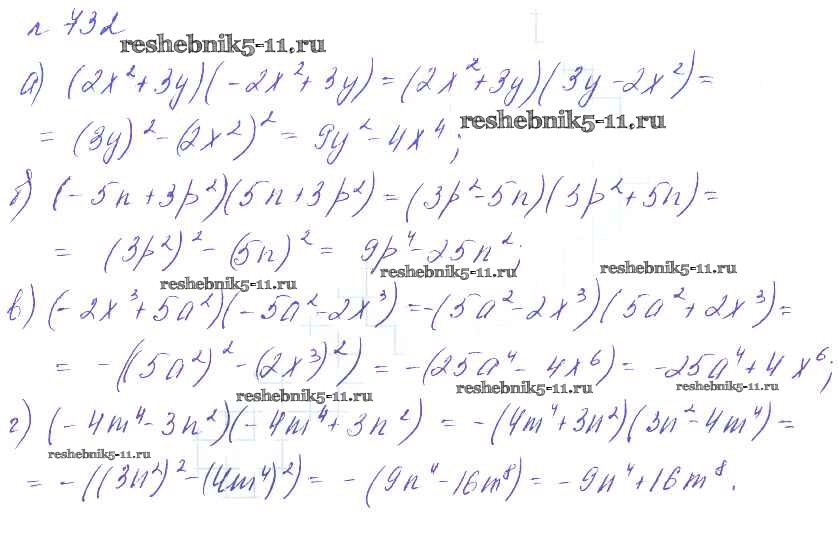 № 732
reshebnik5-11.ru
а) (2x²+3y)(-2x²+3y) = (2x²+3y)(3y-2x²) =
reshebnik5-11.ru
= (3y)² - (2x²)² = 9y² - 4x⁴;
б) (-5n+3p²)(5n+3p²) = (3p²-5n)(3p²+5n) =
= (3p²)² - (5n)² = 9p⁴-25n²;
reshebnik5-11.ru
reshebnik5-11.ru
reshebnik5-11.ru
в) (-2x³+5a²)(-5a²-2x³) = -(5a²-2x³)(5a²+2x³) =
= -((5a²)² - (2x³)²) = -(25a⁴ - 4x⁶) = -25a⁴+4x⁶;
reshebnik5-11.ru
reshebnik5-11.ru
reshebnik5-11.ru
г) (-4m⁴-3n²)(-4m⁴+3n²) = -(4m⁴+3n²)(3n²-4m⁴) =
reshebnik5-11.ru
= -((3n²)² - (4m⁴)²) = -(9n⁴-16m⁸) = -9n⁴+16m⁸.